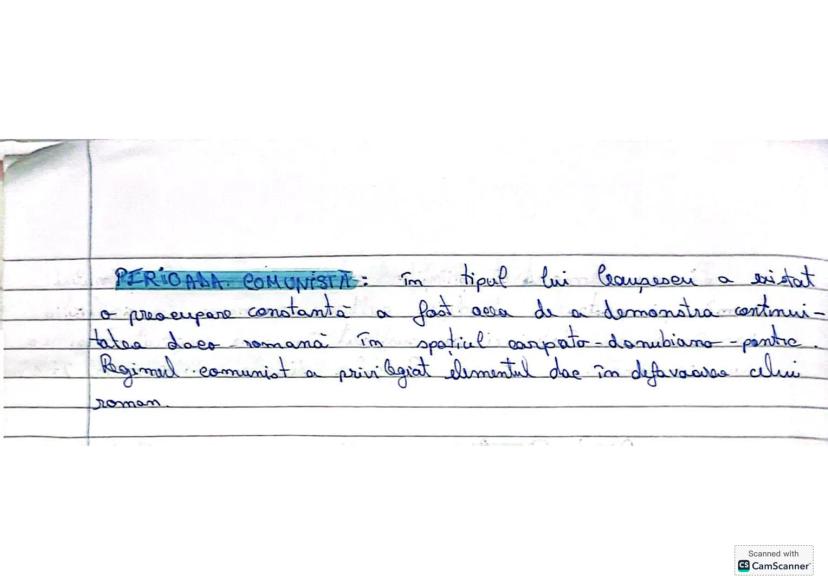 PERIOADA COMUNISTĂ: în tipul lui Ceaușescu a existat
o preocupare constantă a fost acea de a demonstra continui-
tatea daco-romană în spațiul carpato-danubiano-pontic.
Regimul comunist a privilegiat elementul dac în defavoarea celui
roman.
Scanned with
CS CamScanner